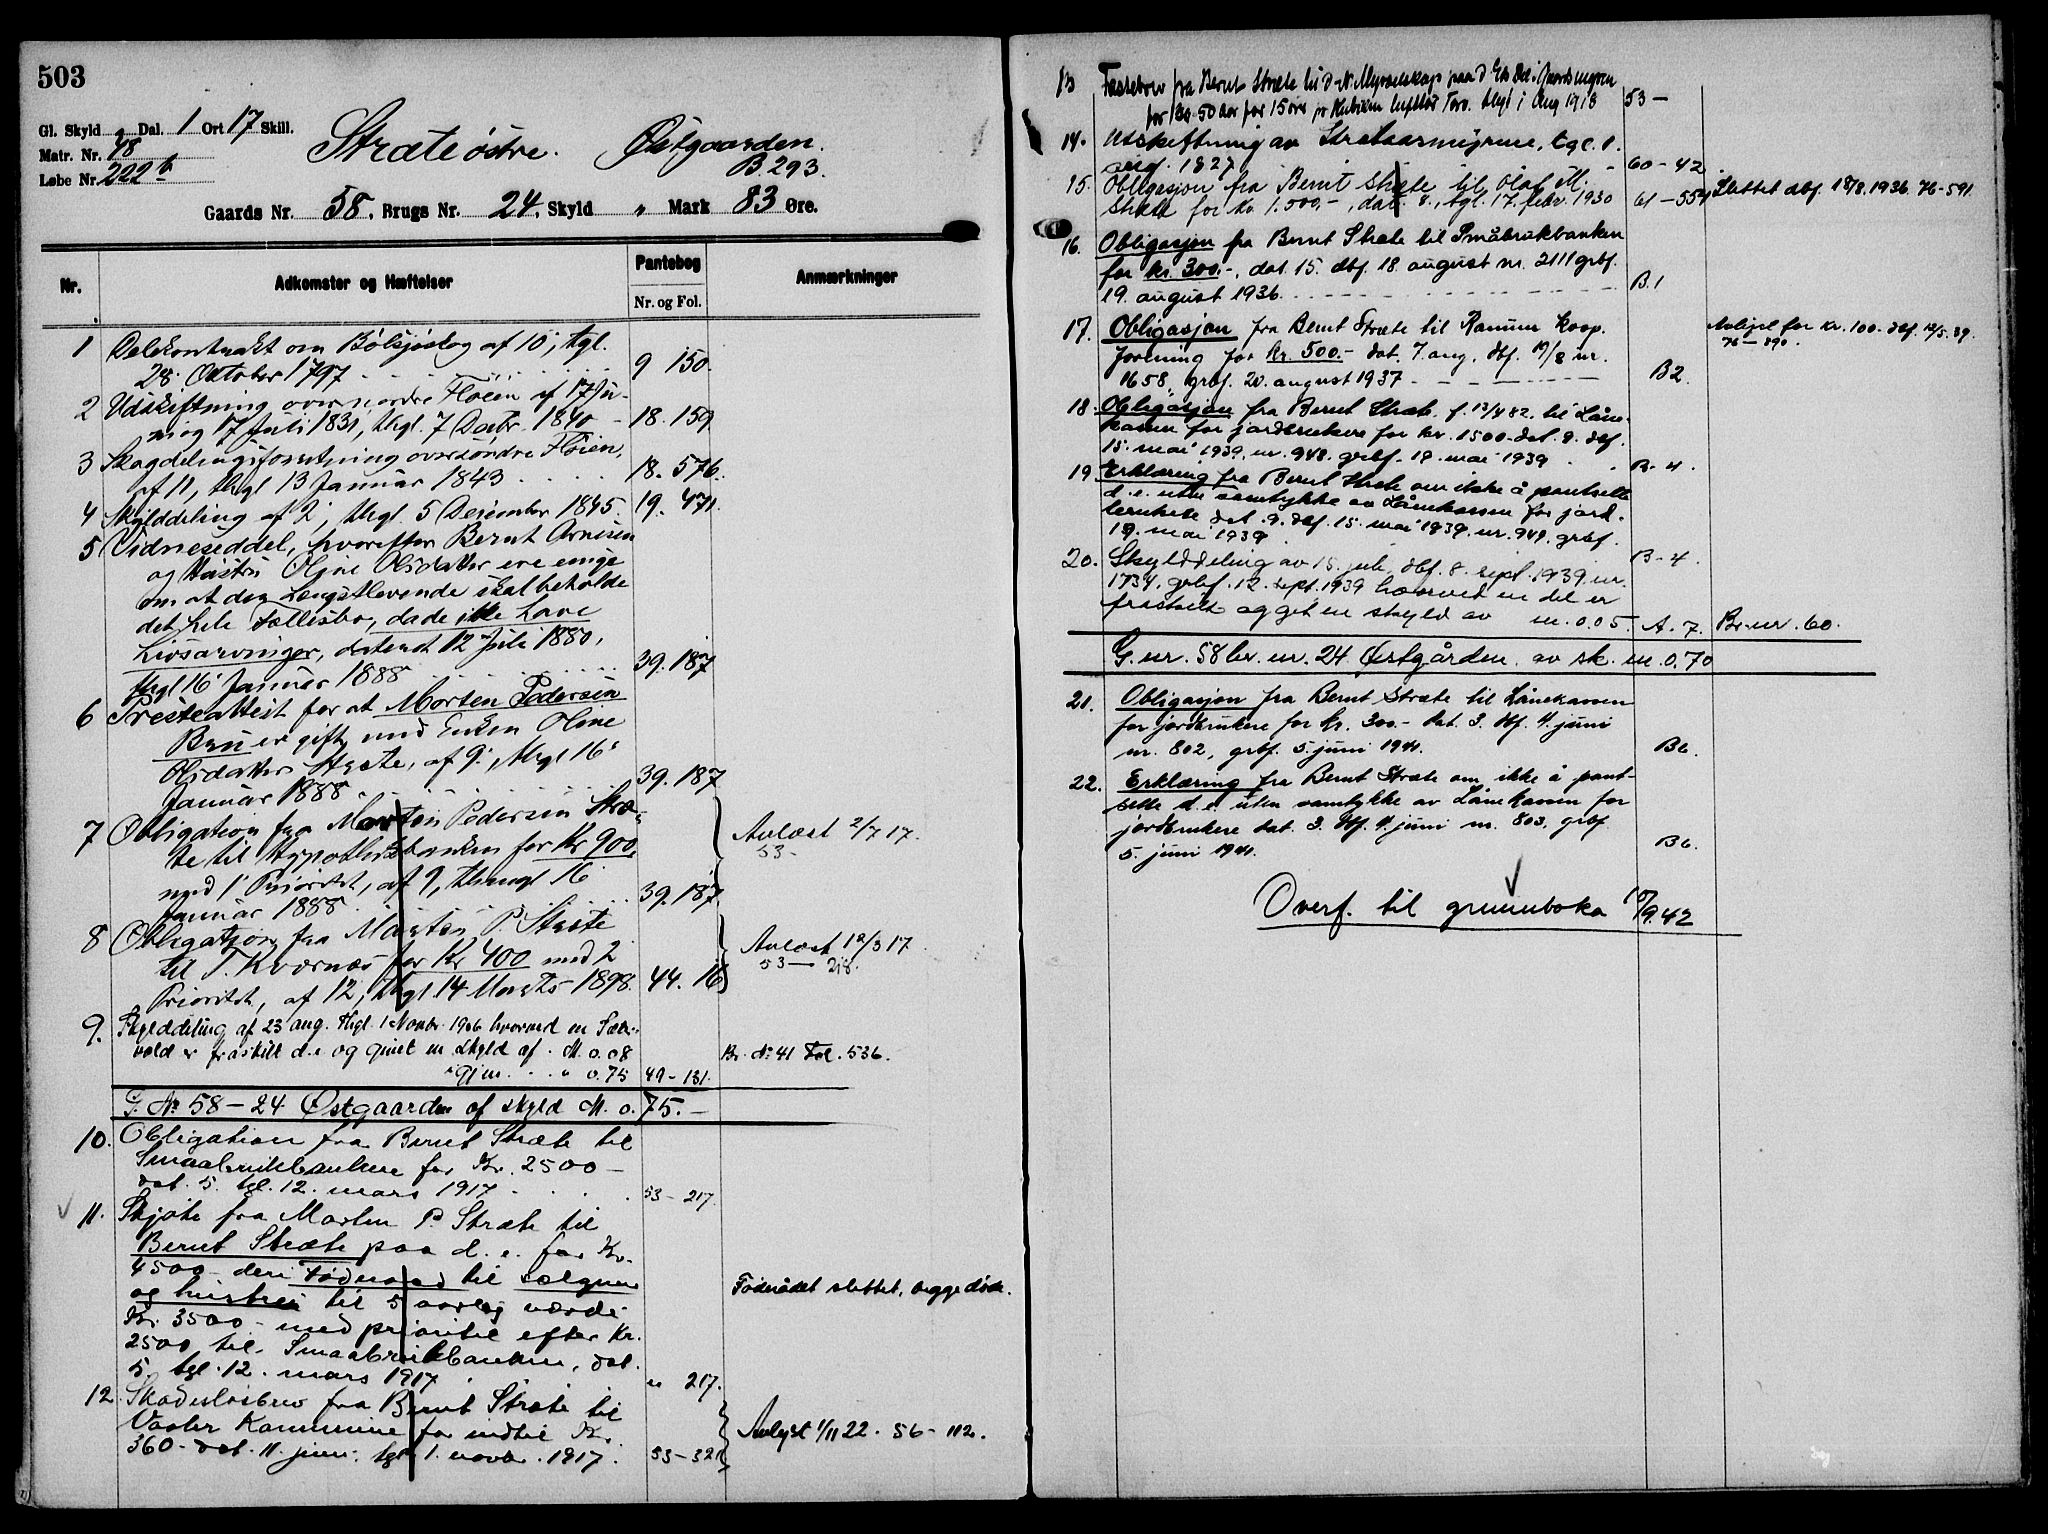 503
Gl. Skyld Dal. 1 Ort 17 Skill.
Matr. Nr. 48
Løbe Nr. 222 b
Stræte østre. Østgaarden.
B. 293.
Gaards Nr. 58, Brugs Nr. 24, Skyld " Mark 83 Øre.
Nr. Adkomster og Hæftelser Pantebog Nr. og Fol. Anmærkninger
1 Delekontrakt om Bølsjøskog af 10', thgl.
28. Oktober 1797 9 150.
2 Udskiftning over nordre Fløien af 17 Ju-
ni og 17 Juli 1831, thgl. 7 Decbr. 1840 - 18. 159
3 Skogdelingsforretning over søndre Fløien,
af 11, thgl 13 Januar 1843 18. 576.
4 Skylddeling af 2', thgl. 5 Desember 1845. 19. 471.
5 Vidneseddel, hvorefter Bernt Arntsen
og Hustru Oline Olsdatter ere enige
om at den Længstlevende skal beholde
det hele Fællesbo, da de ikke have
Livsarvinger, dateret 12 Juli 1880,
thgl 16' Januar 1888 39. 187
6 Presteattest for at Morten Pedersen
Bru er gift med Enken Oline
Olsdatter Stræte, af 9', thgl 16'
Januar 1888 39. 187
7 Obligation fra Morten Pedersen Stræ-
te til Hypothekbanken for Kr 900,
med 1' Prioritet, af 9, thgl 16
Januar 1888 39. 187 Avlæst 2/7 17.
53 -
8 Obligation fra Morten P. Stræte
til T. Kværnæs for Kr 400 med 2
Prioritet, af 12, thgl. 14 Marts 1898. 44. 16 Avlæst 12/3 17.
53 — 218.
9. Skylddeling af 23 aug. thgl. 1 Novbr. 1906 hvorved en
er fraskilt d.e og givet en skyld af. M. 0.08 Br. No 41 Fol. 536.
Igjen. " 0.75 49 - 131.
G. No 58 - 24 Østgaarden af skyld M. 0.75. -
10. Obligation fra Bernt Stræte til
Smaabrukbanken for Kr. 2500 -
dat. 5. tgl. 12. mars 1917 53 - 217.
11. Skjøte fra Morten P. Stræte til
Bernt Stræte paa d. e. for Kr.
4500 - deri Føderaad til sælgeren
og hustru til 5 aarlig værdi
Kr. 3500 - med prioritet efter Kr.
2500 til Smaabrukbanken, dat.
5. tgl. 12. mars 1917 " 217. Føderådet slettet, begge døde.
12. Skadesløsbrev fra Bernt Stræte til
Kommune for indtil Kr.
360 - dat. 11. juni, tgl. 1. novbr. 1917. 53 - 321 Avlyst 1/11 22. 56 - 112.
13 Festebrev fra Bernt Stræte til
for 50 aar for 15 øre pr Kubikm lufttør Torv. tlgl i Aug 1918 53 -
14. Utskiftning av Strætaasmyrene, tgl. 1.
aug. 1927 60 - 42
15. Obligasjon fra Bernt Stræte til Olaf M.
Stræte for kr. 1.500,-, dat. 8., tgl. 17. febr. 1930 61 - 554 Slettet dbf. 18/8. 1936. 76 - 591
16. Obligasjon fra Bernt Stræte til Småbrukbanken
for kr. 300.-, dat. 15. dbf. 18. august nr. 2111 grbf.
19. august 1936. B. 1
17. Obligasjon fra Bernt Stræte til Ranum koop.
forening for kr. 500.- dat. 7. aug. dbf. 19/8 nr.
1658, grbf. 20. august 1937 B 2. Avlyst for kr. 100.- dbf. 12/5. 39.
76 - 890.
18. Obligasjon fra Bernt Stræte f. 13/4 82. til Låne-
kassen for jordbrukere for kr. 1500.- dat. 9. dbf.
15. mai 1939, nr. 948. grbf. 19. mai 1939 B - 4.
19. Erklæring fra Bernt Stræte om ikke å pantsette
d. e. uten samtykke av Lånekassen for jord-
brukere dat. 9. dbf. 15. mai 1939. nr. 949. grbf.
19. mai 1939 B - 4.
20. Skylddeling av 15. juli, dbf. 8. sept. 1939. nr.
1734, grbf. 12. sept. 1939 hvorved en del er
fraskilt og git en skyld av m. 0.05. A. 7. Br. nr. 60.
G. nr. 58 br. nr. 24 Østgården av sk. m. 0.70
21. Obligasjon fra Bernt Stræte til Lånekassen
for jordbrukere for kr. 300.- dat. 3. dbf. 4. juni
nr. 802, grbf. 5. juni 1941. B 6.
22. Erklæring fra Bernt Stræte om ikke å pant-
sette d. e. uten samtykke av Lånekassen for
jordbrukere dat. 3. dbf. 4. juni nr. 803. grbf.
5. juni 1941. B 6.
Overf. til grunnboka 9.42